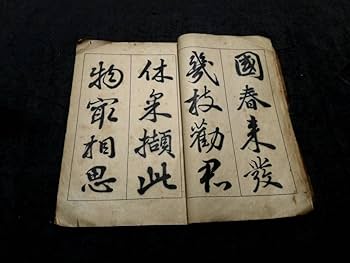 國春来發
幾枝勸君
休采擷此
物㝡相思